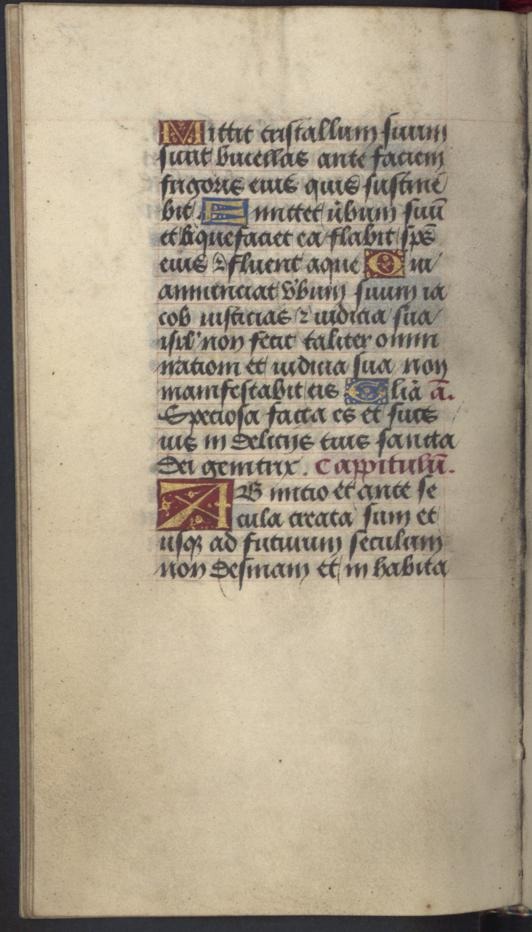 Mittit cristallum suum
sicut bucellas ante faciem
frigoris eius quis sustine
bit Emittet v̄bum suū
et liquefaciet ea flabit sp̄s
eius ⁊ fluent aque Qui
annunciat v̄bum suum ia
cob iusticias ⁊ iudicia sua
isrl' non fecit taliter omni
nationi et iudicia sua non
manifestabit eis Gl̄ia ā.
Speciosa facta es et suos
uis in deliciis tuis sancta
dei genitrix. Cappitulū.
AB initio et ante se
cula creata sum et
usqȝ ad futurum seculum
non desinam et in habita